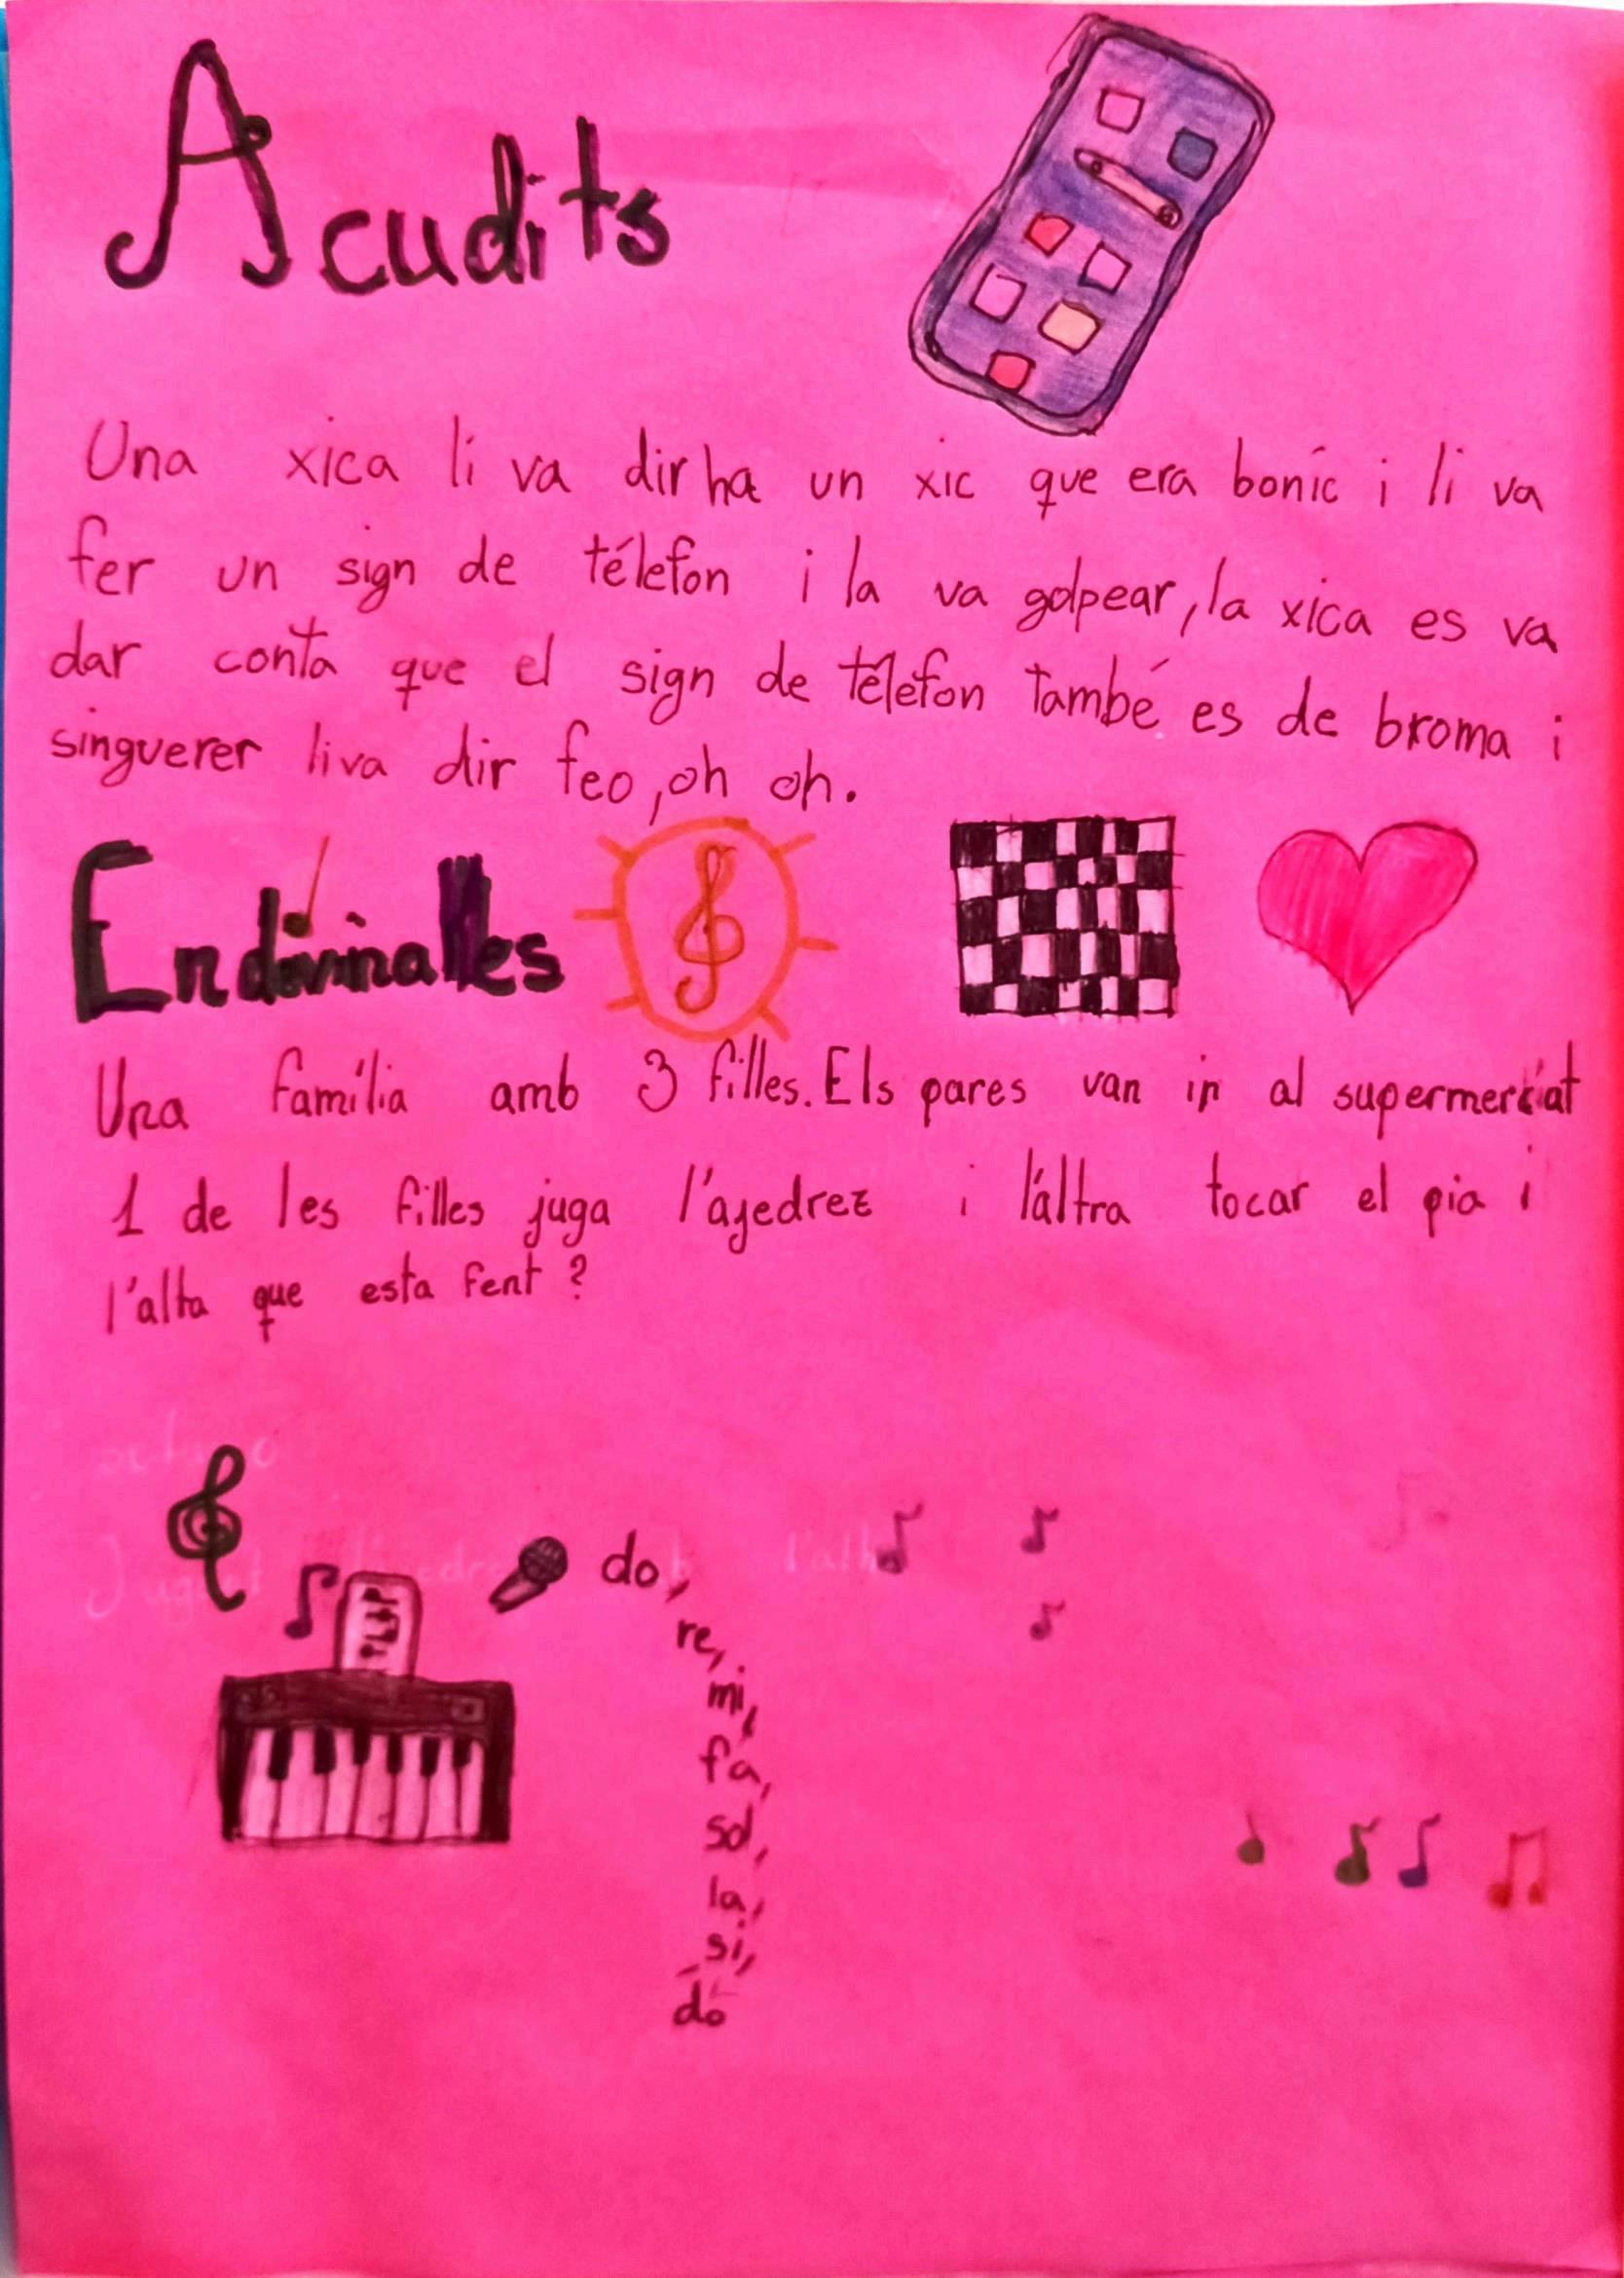 Acudits
Una xica li va dir ha un xic que era bonic i li va
fer un sign de télefon i la va golpear, la xica es va
dar conta que el sign de télefon també es de broma i
singuerer liva dir feo, oh oh.
Endevinalles
Una família amb 3 filles. Els pares van ir al supermercat
1 de les filles juga l'ajedrez i l'altra tocar el pia i
l'alta que esta fent?
do,
re,
mi,
fa,
sol,
la,
si,
do